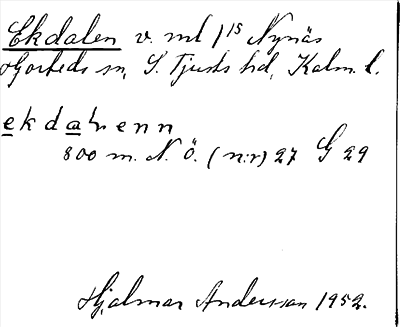 Ekdalen v. ml 1/15 Nynäs
Hjorteds sn, S. Tjusts hd, Kalm. l.
ekdaɽenn
800 m. N. Ö. (n:r) 27 G 29
Hjalmar Andersson 1952.